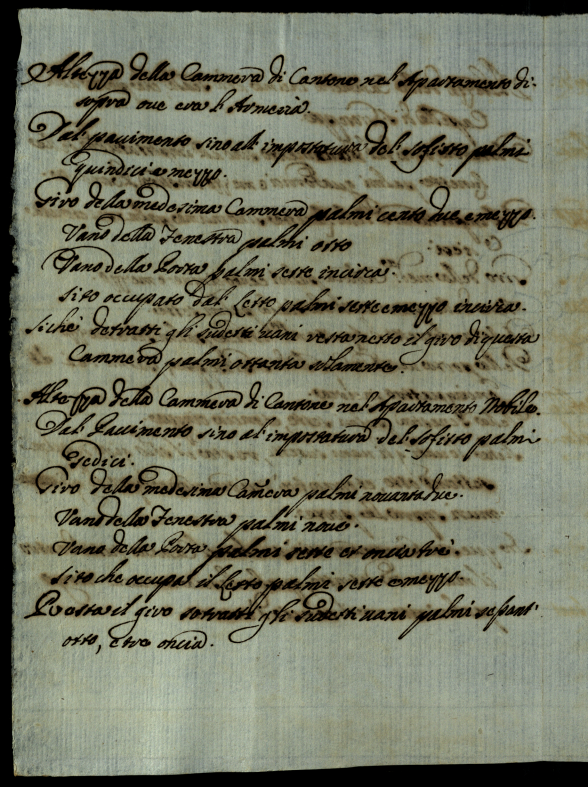 Altezza della Cammera di Cantone nel Apartamento di
sopra ove era l'Armeria.
Dal pavimento sino all'impostatura del Sofisto palmi
quindici e mezzo.
Giro della medesima Cammera palmi cento due, e mezzo.
Vano della Fenestra palmi otto
Vano della Porta palmi sette incirca.
Sito occupato dal Letto palmi sette e mezzo incirca.
Siche detratti gli sudetti vani resta netto il giro di questa
Cammera palmi ottanta solamente.
Altezza della Cammera di Cantone nel Apartamento Nobile.
Dal Pavimento sino al impostatura del Sofisto palmi
sedici.
Giro della medesima Cam̃era palmi novantadue.
Vano della Fenestra palmi nove.
Vano della Porta palmi sette et oncie tre.
Sito che occupa il Letto palmi sette e mezzo.
Resta il giro sotratti gli sudetti vani palmi sessant'
otto, e tre oncie.